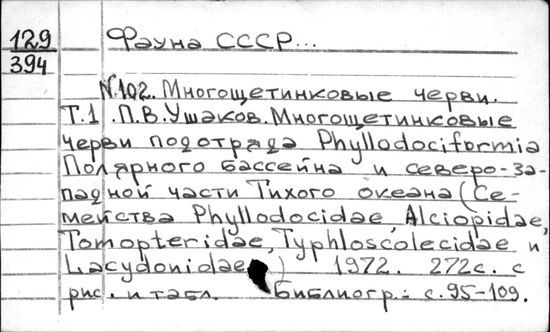 129
394
Фауна СССР...
N.102. Многощетинковые черви.
Т.1. П.В.Ушаков. Многощетинковые
черви подотряда Phyllodociformia
Полярного бассейна и северо-за-
падной части Тихого океана (Се-
мейства Phyllodocidae, Alciopidae,
Tomopteridae, Typhloscolecidae и
Lacydonidae) 1972. 272с. с
рис. и табл. Библиогр.: с.95-109.